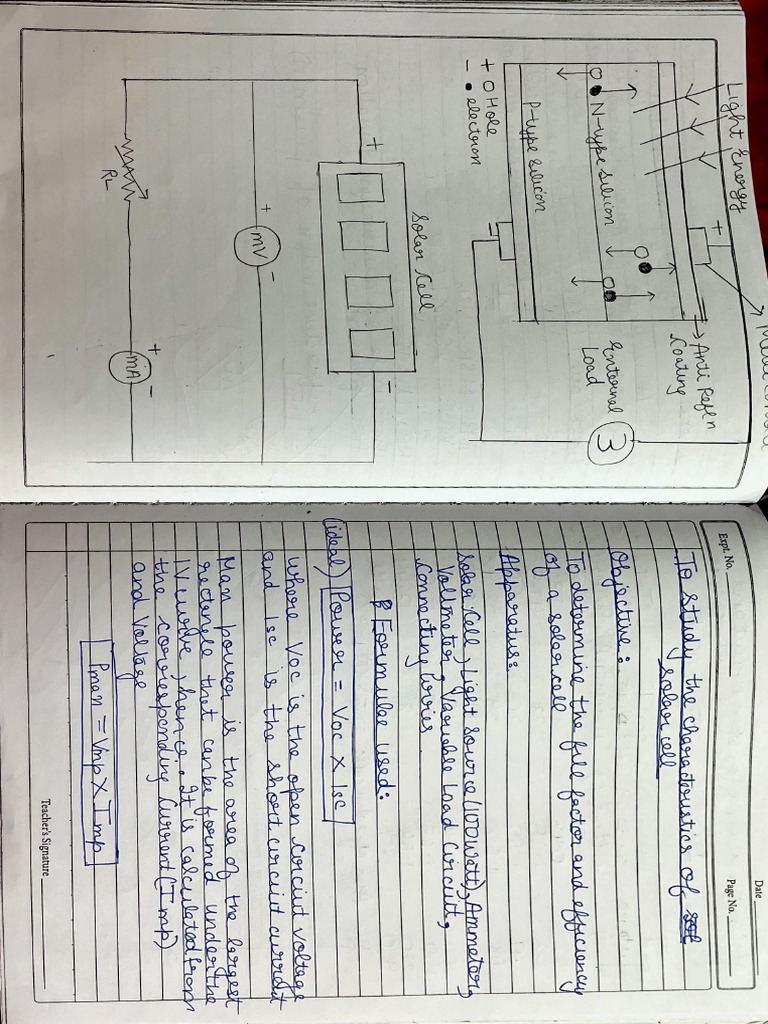 Light Energy
Metal contact
+
Anti Refln
Coating
N-type silicon
P-type silicon
External
Load
3
-
+ O Hole
- • electron
Solar Cell
+
-
+
mV
-
RL
+
mA
-
Expt. No.
Date
Page No.
To study the characteristics of
solar cell
Objective:
To determine the fill factor and efficiency
of a solar cell
Apparatus:
Solar Cell, Light Source (100 watt), Ammeter,
Voltmeter, Variable Load Circuit,
Connecting Wires
Formulae used:
(ideal) Power = Voc X Isc
where Voc is the open circuit voltage
and Isc is the short circuit current
Max power is the area of the largest
rectangle that can be formed under the
IV curve, hence. It is calculated from
the corresponding Current (Imp)
and Voltage
Pmax = Vmp X Imp
Teacher's Signature